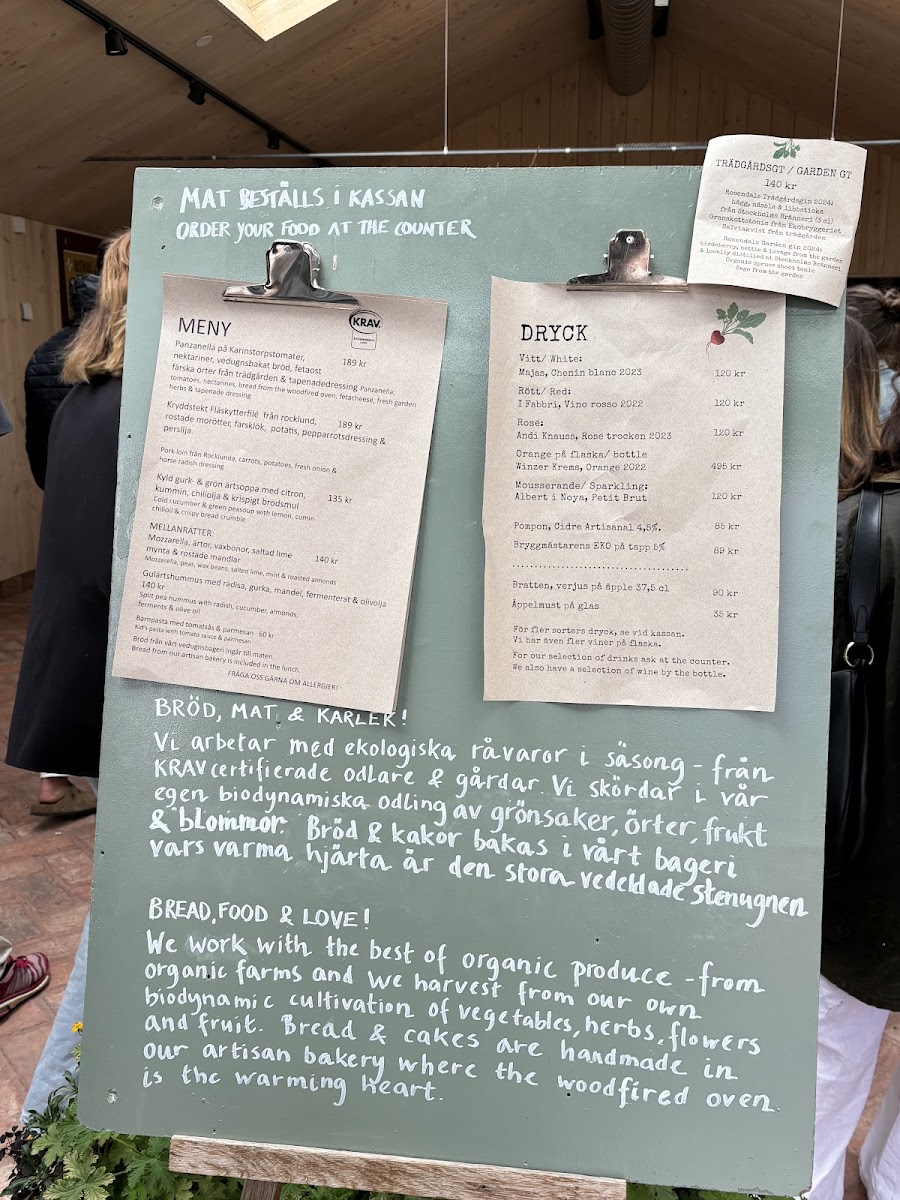 MAT BESTÄLLS I KASSAN
ORDER YOUR FOOD AT THE COUNTER
TRÄDGÅRDSGT / GARDEN GT
140 kr
Rosendals Trädgårdsgin 2024:
hägg, nässla & libbsticka
från Stockholms Bränneri (3 cl)
Granskottstonic från Ekobryggeriet
Salviakvist från trädgården
Rosendals Garden gin 2024:
birdcherry, nettle & lovage from the garden
& locally distilled at Stockholms Bränneri
Organic spruce shoot tonic
Sage from the garden
MENY
KRAV
Panzanella på Karinstorpstomater,
nektariner, vedugnsbakat bröd, fetaost 189 kr
färska örter från trädgård & tapenadedressing Panzanella:
tomatoes, nectarines, bread from the woodfired oven, fetacheese, fresh garden
herbs & tapenade dressing
Kryddstekt Fläskytterfilé från rocklund, 189 kr
rostade morötter, färsklök, potatis, pepparrotsdressing &
persilja.
Pork loin from Rocklunda, carrots, potatoes, fresh onion &
horse radish dressing
Kyld gurk- & grön ärtsoppa med citron, 135 kr
kummin, chiliolja & krispigt brödsmul
Cold cucumber & green peasoup with lemon, cumin
chilioil & crispy bread crumble
MELLANRÄTTER:
Mozzarella, ärtor, vaxbönor, saltad lime 140 kr
mynta & rostade mandlar
Mozzarella, peas, wax beans, salted lime, mint & roasted almonds
Gulärtshummus med rädisa, gurka, mandel, fermenterat & olivolja
140 kr
Split pea hummus with radish, cucumber, almonds,
ferments & olive oil
Barnpasta med tomatsås & parmesan 60 kr
Kid's pasta with tomato sauce & parmesan
Bröd från vårt vedugnsbageri ingår till maten.
Bread from our artisan bakery is included in the lunch.
FRÅGA OSS GÄRNA OM ALLERGIER!
DRYCK
Vitt/ White:
Majas, Chenin blanc 2023 120 kr
Rött/ Red:
I Fabbri, Vino rosso 2022 120 kr
Rosé:
Andi Knauss, Rose trocken 2023 120 kr
Orange på flaska/ bottle
Winzer Krems, Orange 2022 495 kr
Mousserande/ Sparkling:
Albert i Noya, Petit Brut 120 kr
Pompon, Cidre Artisanal 4,5%. 85 kr
Bryggmästarens EKO på tapp 5% 89 kr
Bratten, verjus på äpple 37,5 cl 90 kr
Äppelmust på glas 35 kr
För fler sorters dryck, se vid kassan.
Vi har även fler viner på flaska.
For our selection of drinks ask at the counter.
We also have a selection of wine by the bottle.
BRÖD, MAT & KÄRLEK!
Vi arbetar med ekologiska råvaror i säsong - från
KRAV certifierade odlare & gårdar. Vi skördar i vår
egen biodynamiska odling av grönsaker, örter, frukt
& blommor. Bröd & kakor bakas i vårt bageri
vars varma hjärta är den stora vedeldade stenugnen
BREAD, FOOD & LOVE!
We work with the best of organic produce - from
organic farms and we harvest from our own
biodynamic cultivation of vegetables, herbs, flowers
and fruit. Bread & cakes are handmade in
our artisan bakery where the woodfired oven
is the warming heart.